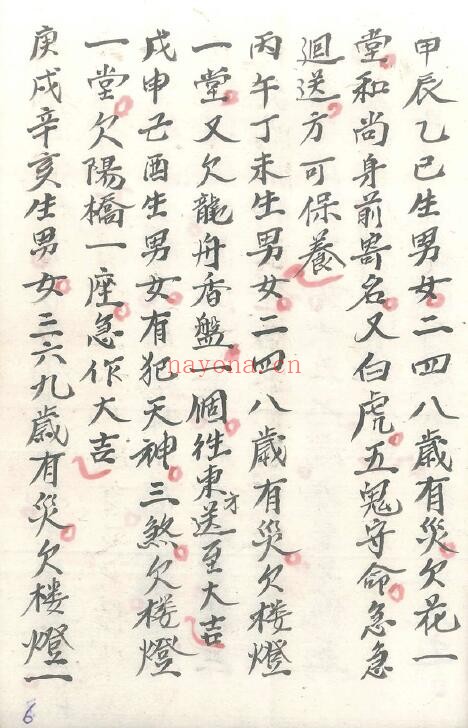 甲辰乙巳生男女二四八歲有災欠花一
堂和尚身前寄名又白虎五鬼守命急急
迴送方可保養
丙午丁未生男女二四八歲有災欠楼燈
一堂又欠龍舟香盤一個徃東方送至大吉
戊申亡酉生男女有犯天神三煞欠楼燈
一堂欠陽橋一座急作大吉
庚戌辛亥生男女三六九歲有災欠楼燈一
nayona.cn
6